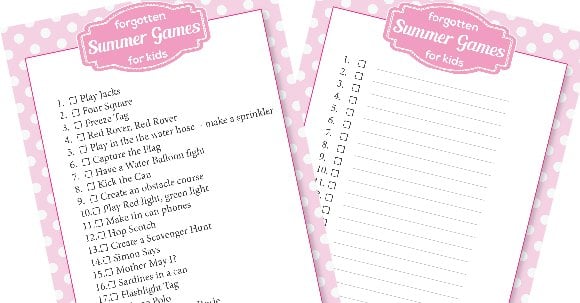 forgotten
Summer Games
for kids
1. Play Jacks
2. Four Square
3. Freeze Tag
4. Red Rover, Red Rover
5. Play in the the water hose - make a sprinkler
6. Capture the Flag
7. Have a Water Balloon fight
8. Kick the Can
9. Create an obstacle course
10. Play Red light, green light
11. Make tin can phones
12. Hop Scotch
13. Create a Scavenger Hunt
14. Simon Says
15. Mother May I?
16. Sardines in a can
17. Flashlight Tag
Polo
forgotten
Summer Games
for kids
1.
2.
3.
4.
5.
6.
7.
8.
9.
10.
11.
12.
13.
14.
15.
16.